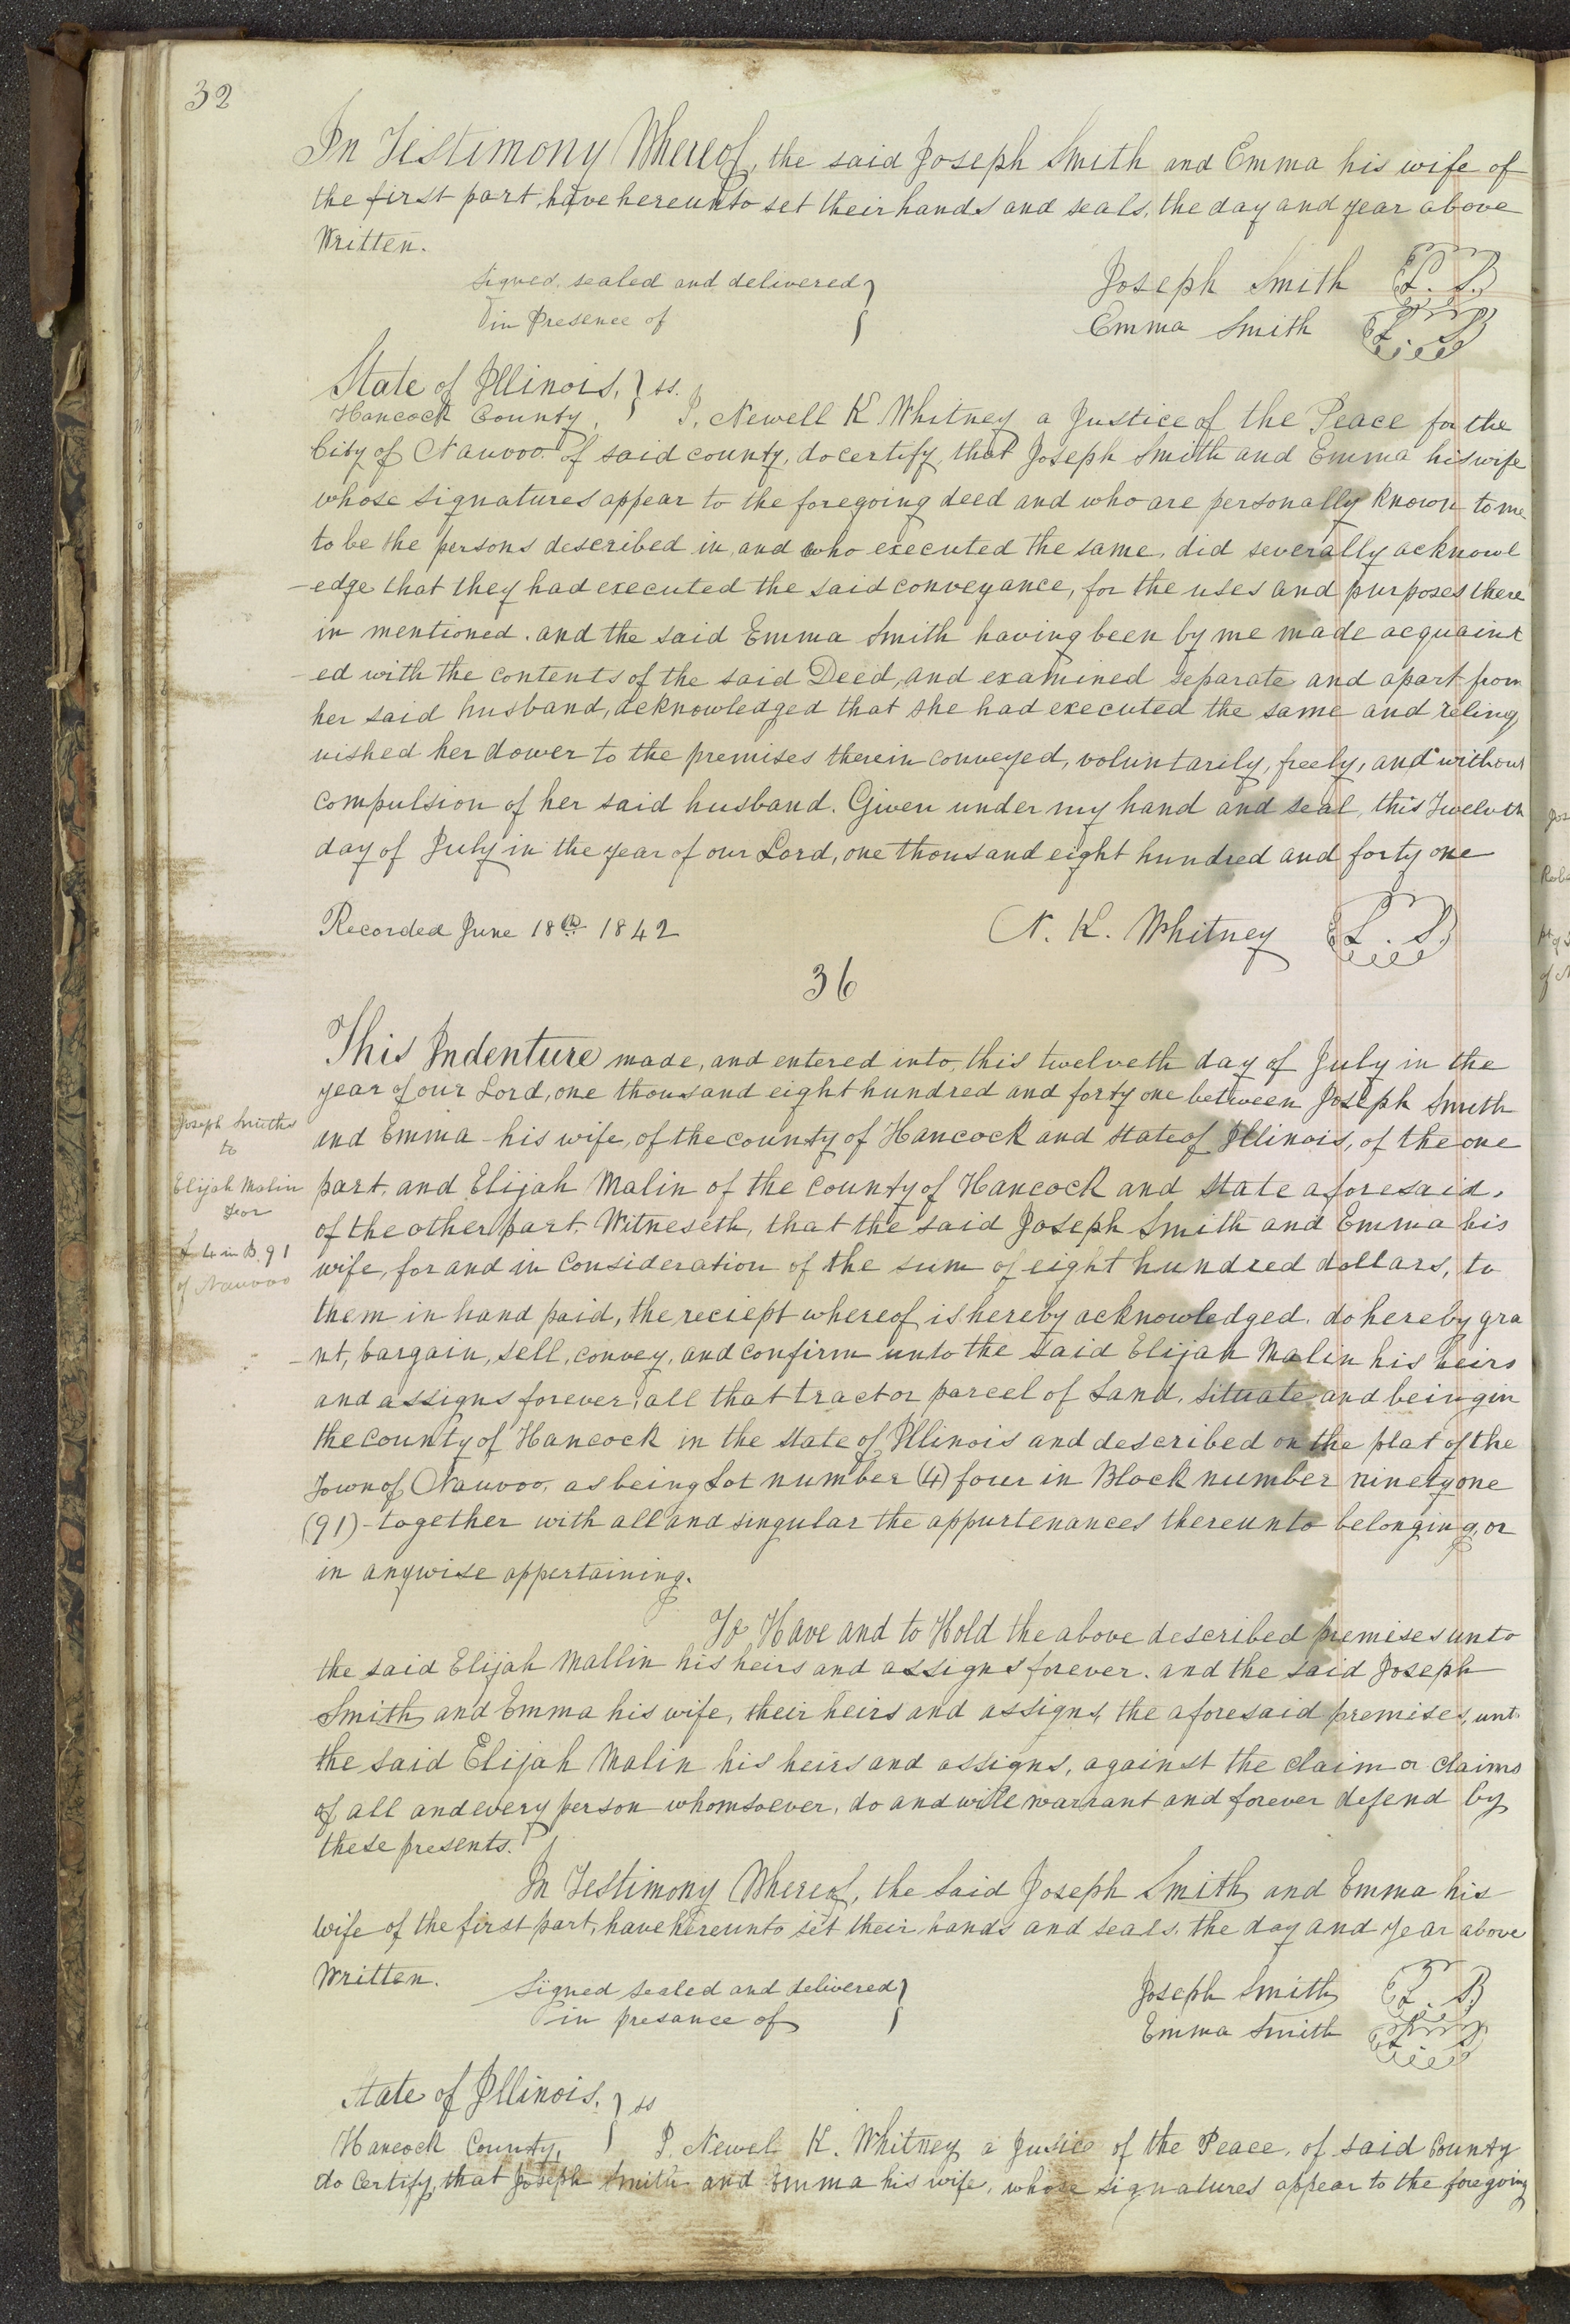 32
In Testimony Whereof, the said Joseph Smith and Emma his wife of
the first part, have hereunto set their hands and seals, the day and year above
Written.
Signed, sealed and delivered } Joseph Smith L. S.
in Presence of Emma Smith L. S.
State of Illinois, } ss.
Hancock County, I, Newell K Whitney a Justice of the Peace for the
City of Nauvoo of said county, do certify, that Joseph Smith and Emma his wife
whose signatures appear to the foregoing deed and who are personally known to me
to be the persons described in, and who executed the same, did severally acknowl
-edge that they had executed the said conveyance, for the uses and purposes there
in mentioned. and the said Emma Smith having been by me made acquaint
-ed with the contents of the said Deed, and examined separate and apart from
her said husband, acknowledged that she had executed the same and relinq
uished her dower to the premises therein conveyed, voluntarily, freely, and without
compulsion of her said husband. Given under my hand and seal, this Twelvth
day of July in the year of our Lord, one thousand eight hundred and forty one
Recorded June 18th 1842 N. K. Whitney L. S.
36
This Indenture made, and entered into, this twelveth day of July in the
year of our Lord, one thousand eight hundred and forty one between Joseph Smith
and Emma his wife, of the county of Hancock and state of Illinois, of the one
part, and Elijah Malin of the county of Hancock and state aforesaid,
of the other part, Witneseth, that the said Joseph Smith and Emma his
wife, for and in Consideration of the sum of eight hundred dollars, to
them in hand paid, the reciept whereof is hereby acknowledged. do hereby gra
-nt, bargain, sell, convey, and confirm unto the said Elijah Malin his heirs
and assigns forever, all that tract or parcel of Land, situate and being in
the county of Hancock in the state of Illinois and described on the plat of the
Town of Nauvoo, as being Lot number (4) four in Block number ninety one
(91) - together with all and singular the appurtenances thereunto belonging, or
in anywise appertaining.
To Have and to Hold the above described premises unto
the said Elijah Mallin his heirs and assigns forever. and the said Joseph
Smith and Emma his wife, their heirs and assigns, the aforesaid premises, unt
the said Elijah Malin his heirs and assigns, against the claim or claims
of all and every person whomsoever, do and will warrant and forever defend by
these presents.
In Testimony Whereof, the said Joseph Smith and Emma his
wife of the first part, have hereunto set their hands and seals, the day and year above
Written.
Signed sealed and delivered } Joseph Smith L. S.
in presance of Emma Smith L. S.
State of Illinois, } ss
Hancock County, I, Newel K. Whitney a Jusice of the Peace, of said County
do Certify, that Joseph Smith and Emma his wife, whose signatures appear to the foregoing
Joseph Smiths
to
Elijah Malin
For
L 4 in B. 91
of Nauvoo